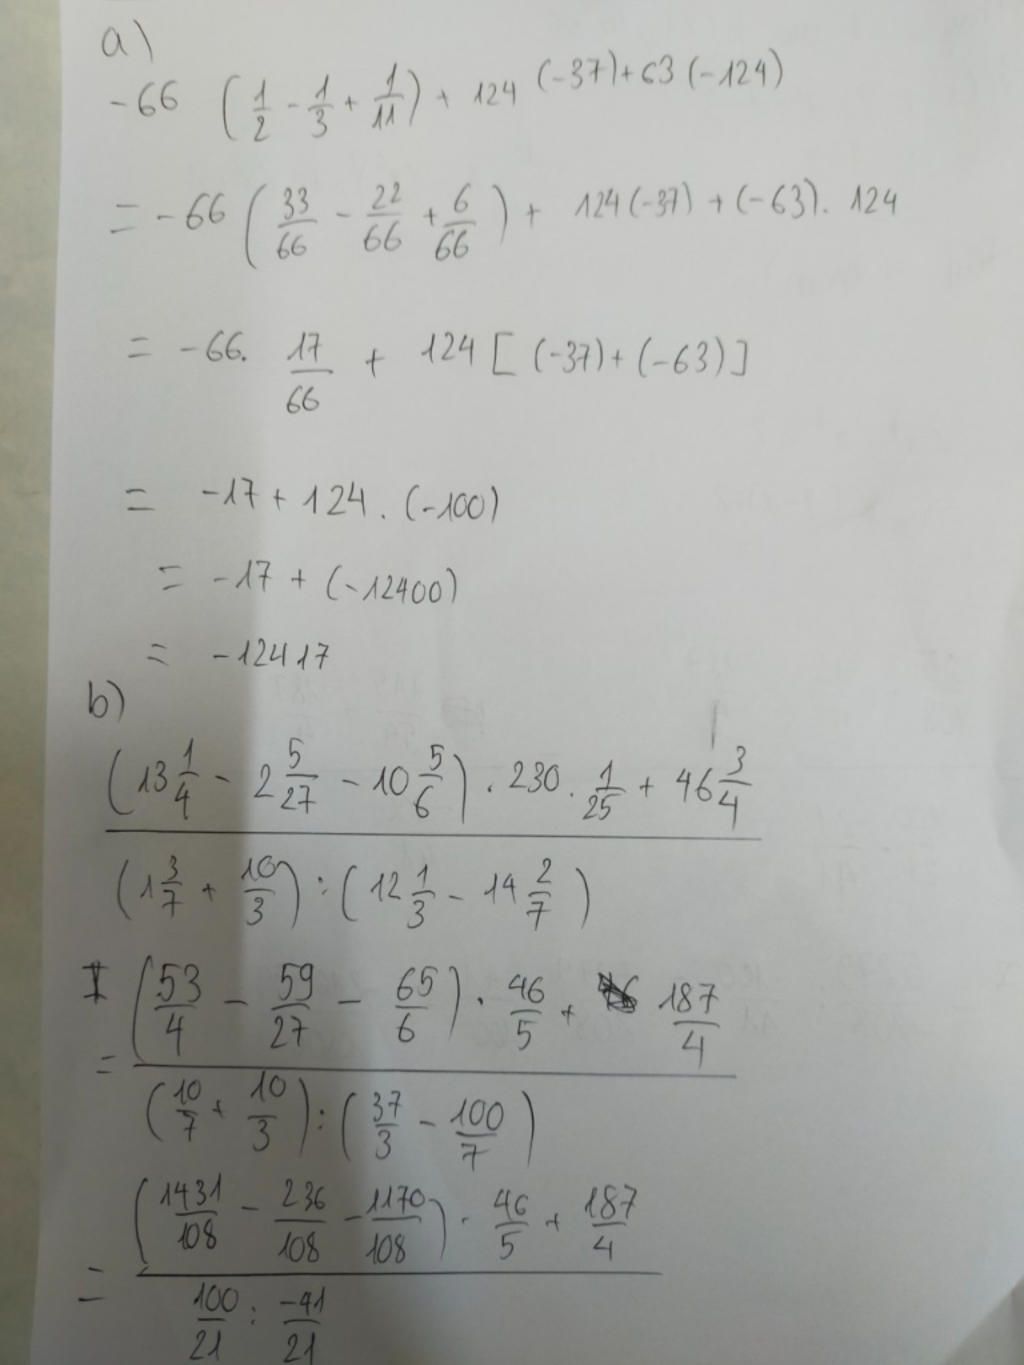 a)
-66 (1/2 - 1/3 + 1/11) + 124 (-37) + 63 (-124)
= -66 (33/66 - 22/66 + 6/66) + 124 (-37) + (-63). 124
= -66. 17/66 + 124 [(-37) + (-63)]
= -17 + 124 . (-100)
= -17 + (-12400)
= -12417
b)
(13 1/4 - 2 5/27 - 10 5/6) . 230 . 1/25 + 46 3/4
(1 3/7 + 10/3) : (12 1/3 - 14 2/7)
I (53/4 - 59/27 - 65/6) . 46/5 + 187/4
= (10/7 + 10/3) : (37/3 - 100/7)
(1431/108 - 236/108 - 1170/108) . 46/5 + 187/4
= 100/21 : -41/21